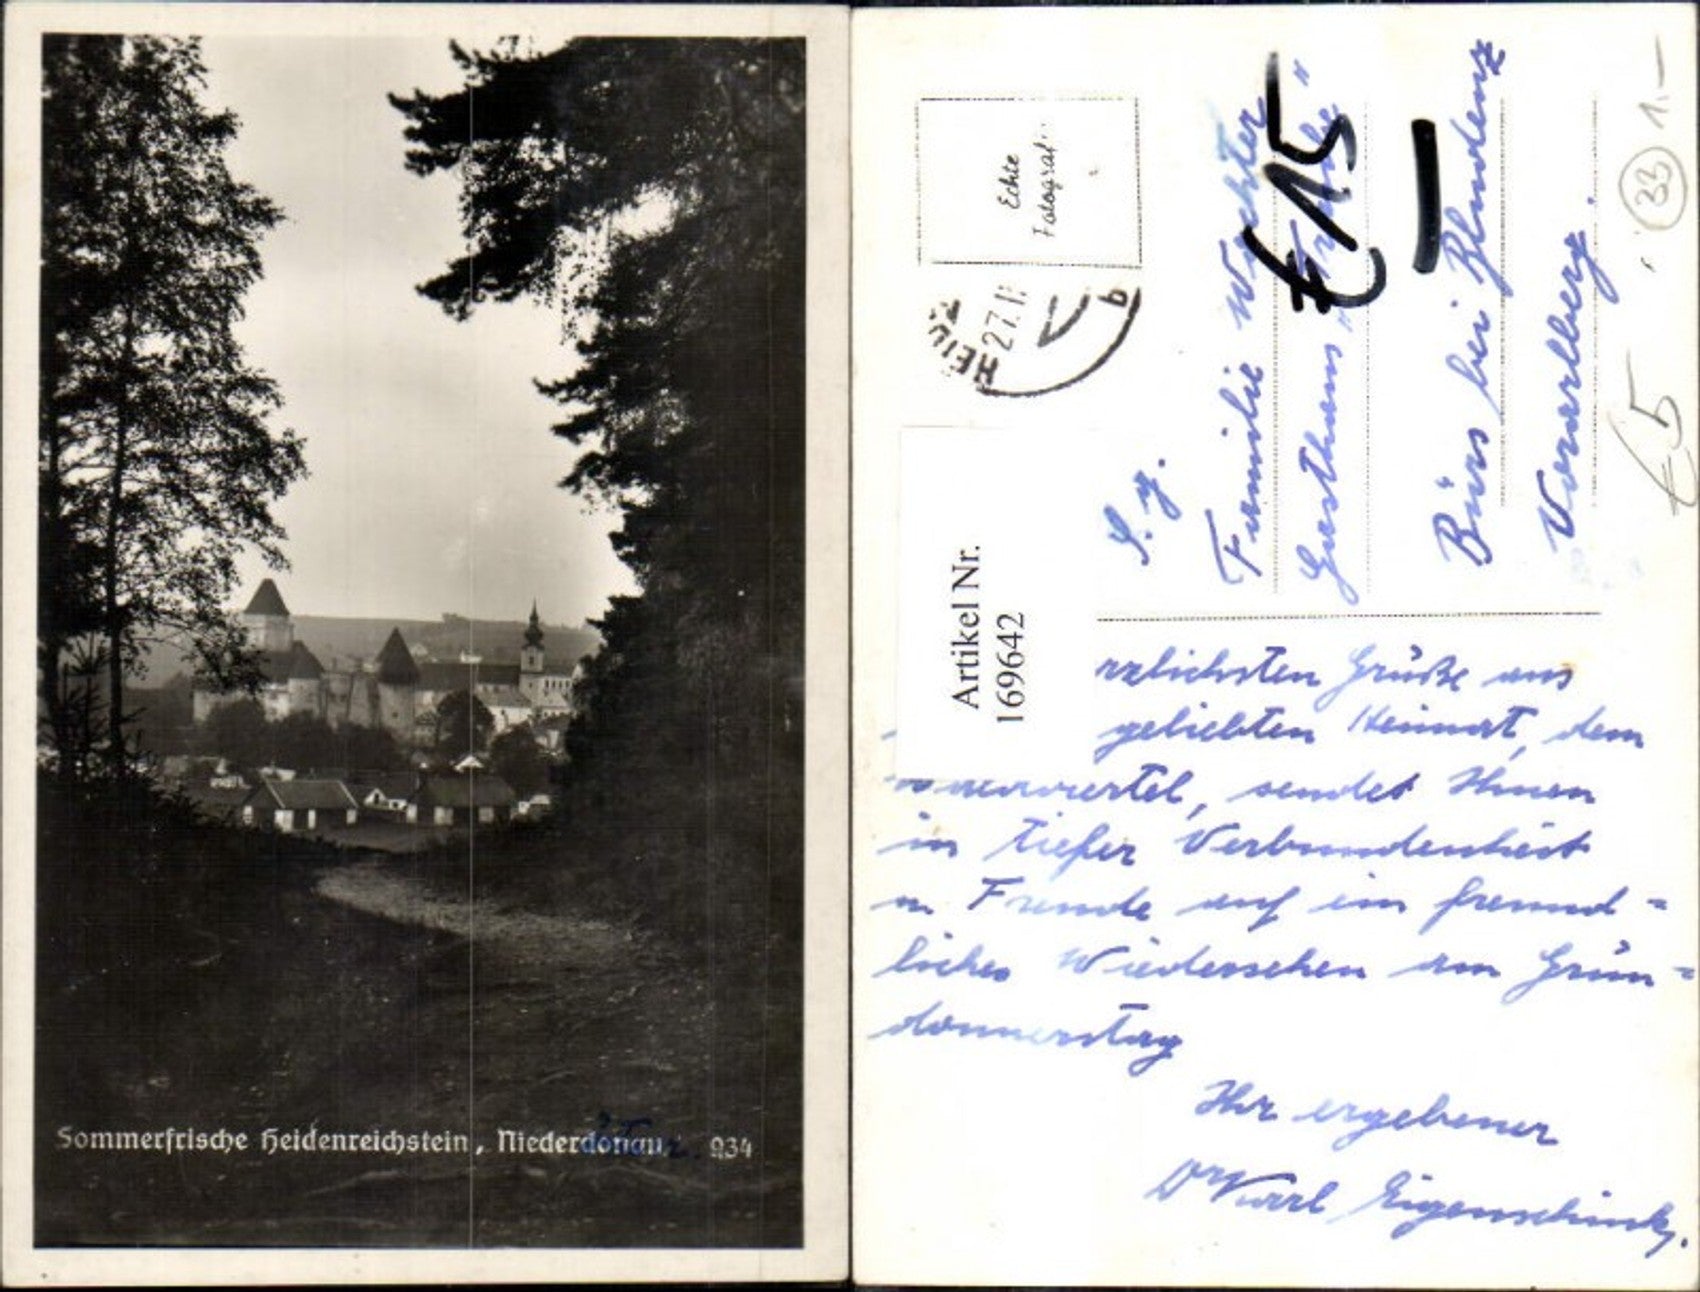 Sommerfrische Heidenreichstein, Niederdonau 234
Echte
Fotograf
27.1
S. g.
Familie Wachter
Gasthaus "Traube"
Bürs bei Bludenz
Vorarlberg.
€ 15 —
33 1.—
€ 5
Artikel Nr.
169642
rzlichsten Grüße aus
geliebten Heimat, dem
viertel, sendet Ihnen
in tiefer Verbundenheit
u. Freude auf ein freund=
liches Wiedersehen am Grün=
donnerstag
Ihr ergebener
Dr Karl Eigenschink.